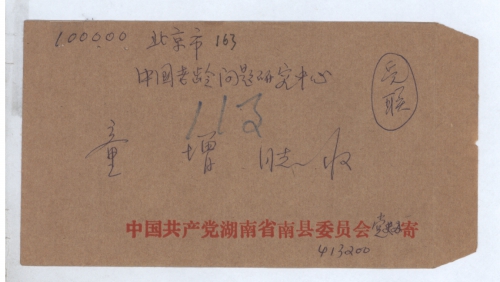 100000 北京市 163
中国老龄问题研究中心
已联
113
童 增 同志 收
中国共产党湖南省南县委员会 寄
413200